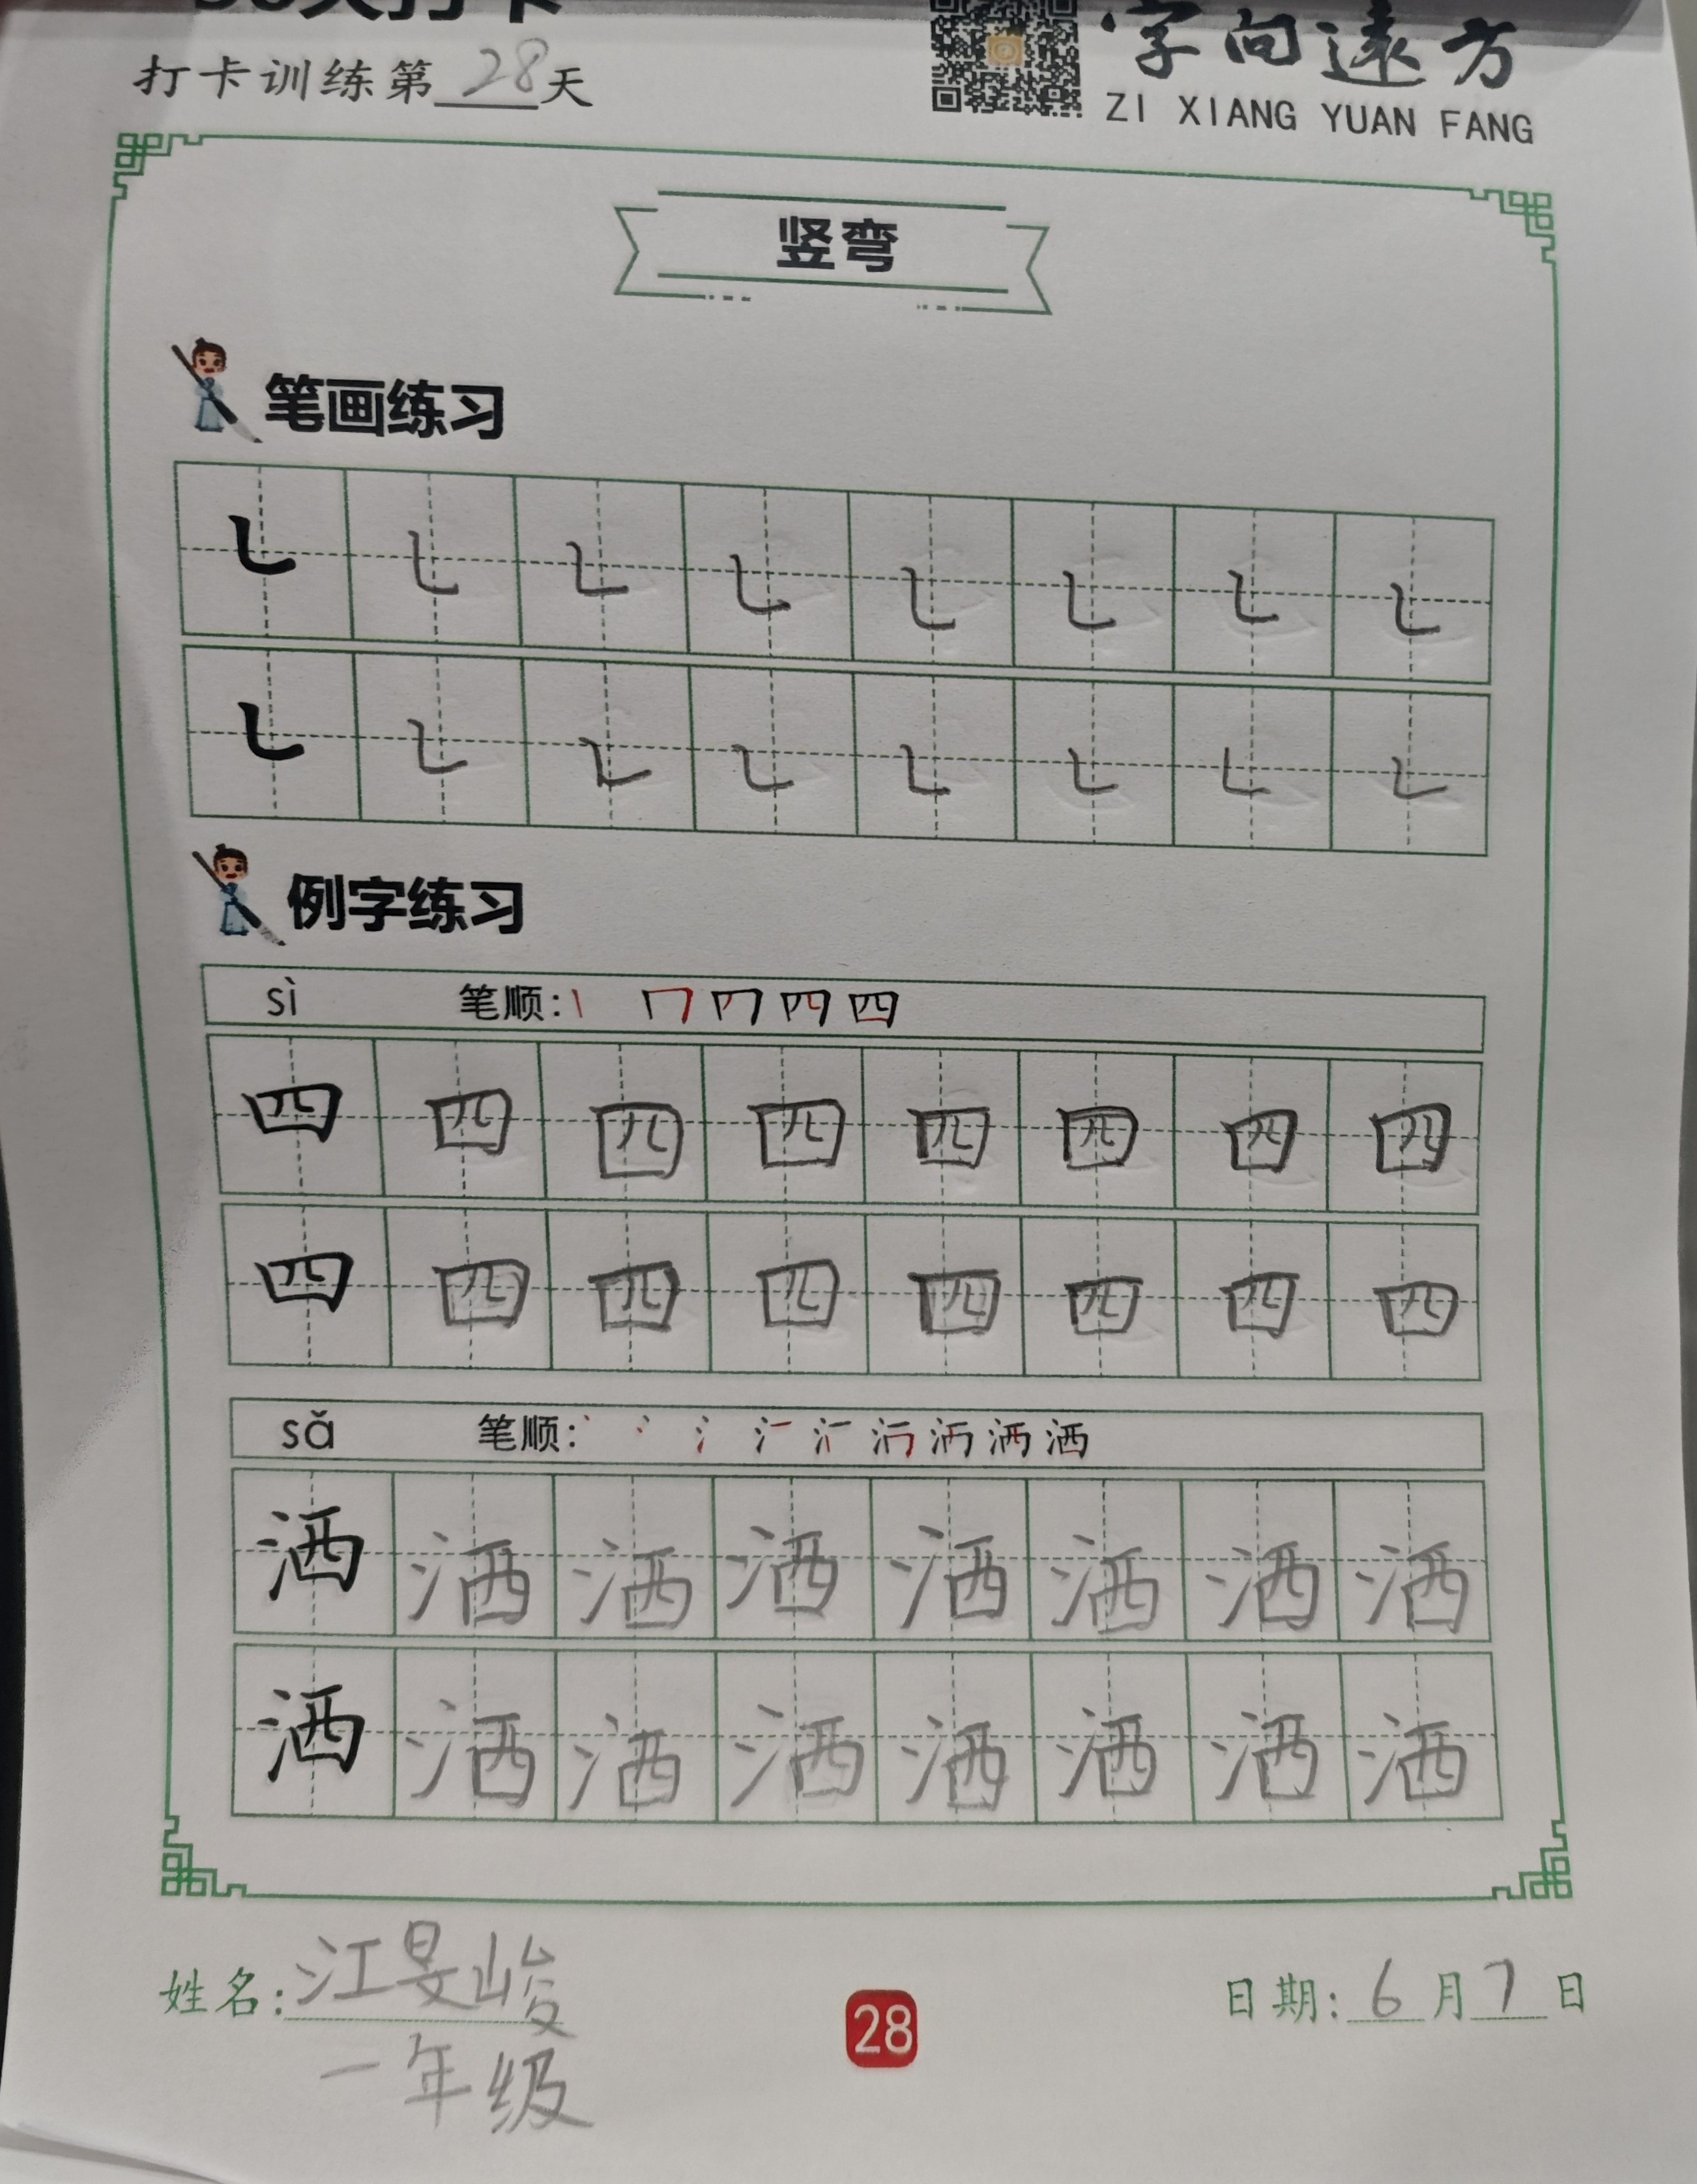 打卡训练第28天
字向遠方
ZI XIANG YUAN FANG
竖弯
笔画练习
㇄ ㇄ ㇄ ㇄ ㇄ ㇄ ㇄ ㇄
㇄ ㇄ ㇄ ㇄ ㇄ ㇄ ㇄ ㇄
例字练习
sì 笔顺: 四
四 四 四 四 四 四 四 四
四 四 四 四 四 四 四 四
sǎ 笔顺: 洒
洒 洒 洒 洒 洒 洒 洒 洒
洒 洒 洒 洒 洒 洒 洒 洒
姓名: 江旻峻
一年级
28
日期: 6月7日